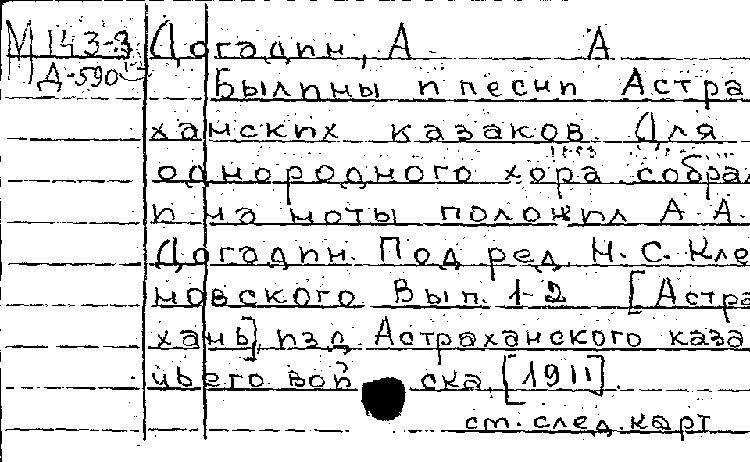 М 143-3 Догадин, А. А.
Д-590
Былины и песни Астра
ханских казаков. Для
однородного хора собрал
и на ноты положил А. А.
Догадин. Под ред. Н. С. Кле
новского. Вып. 1-2 [Астра
хань] изд. Астраханского каза
чьего вой ска, [1911].
ст. след. карт